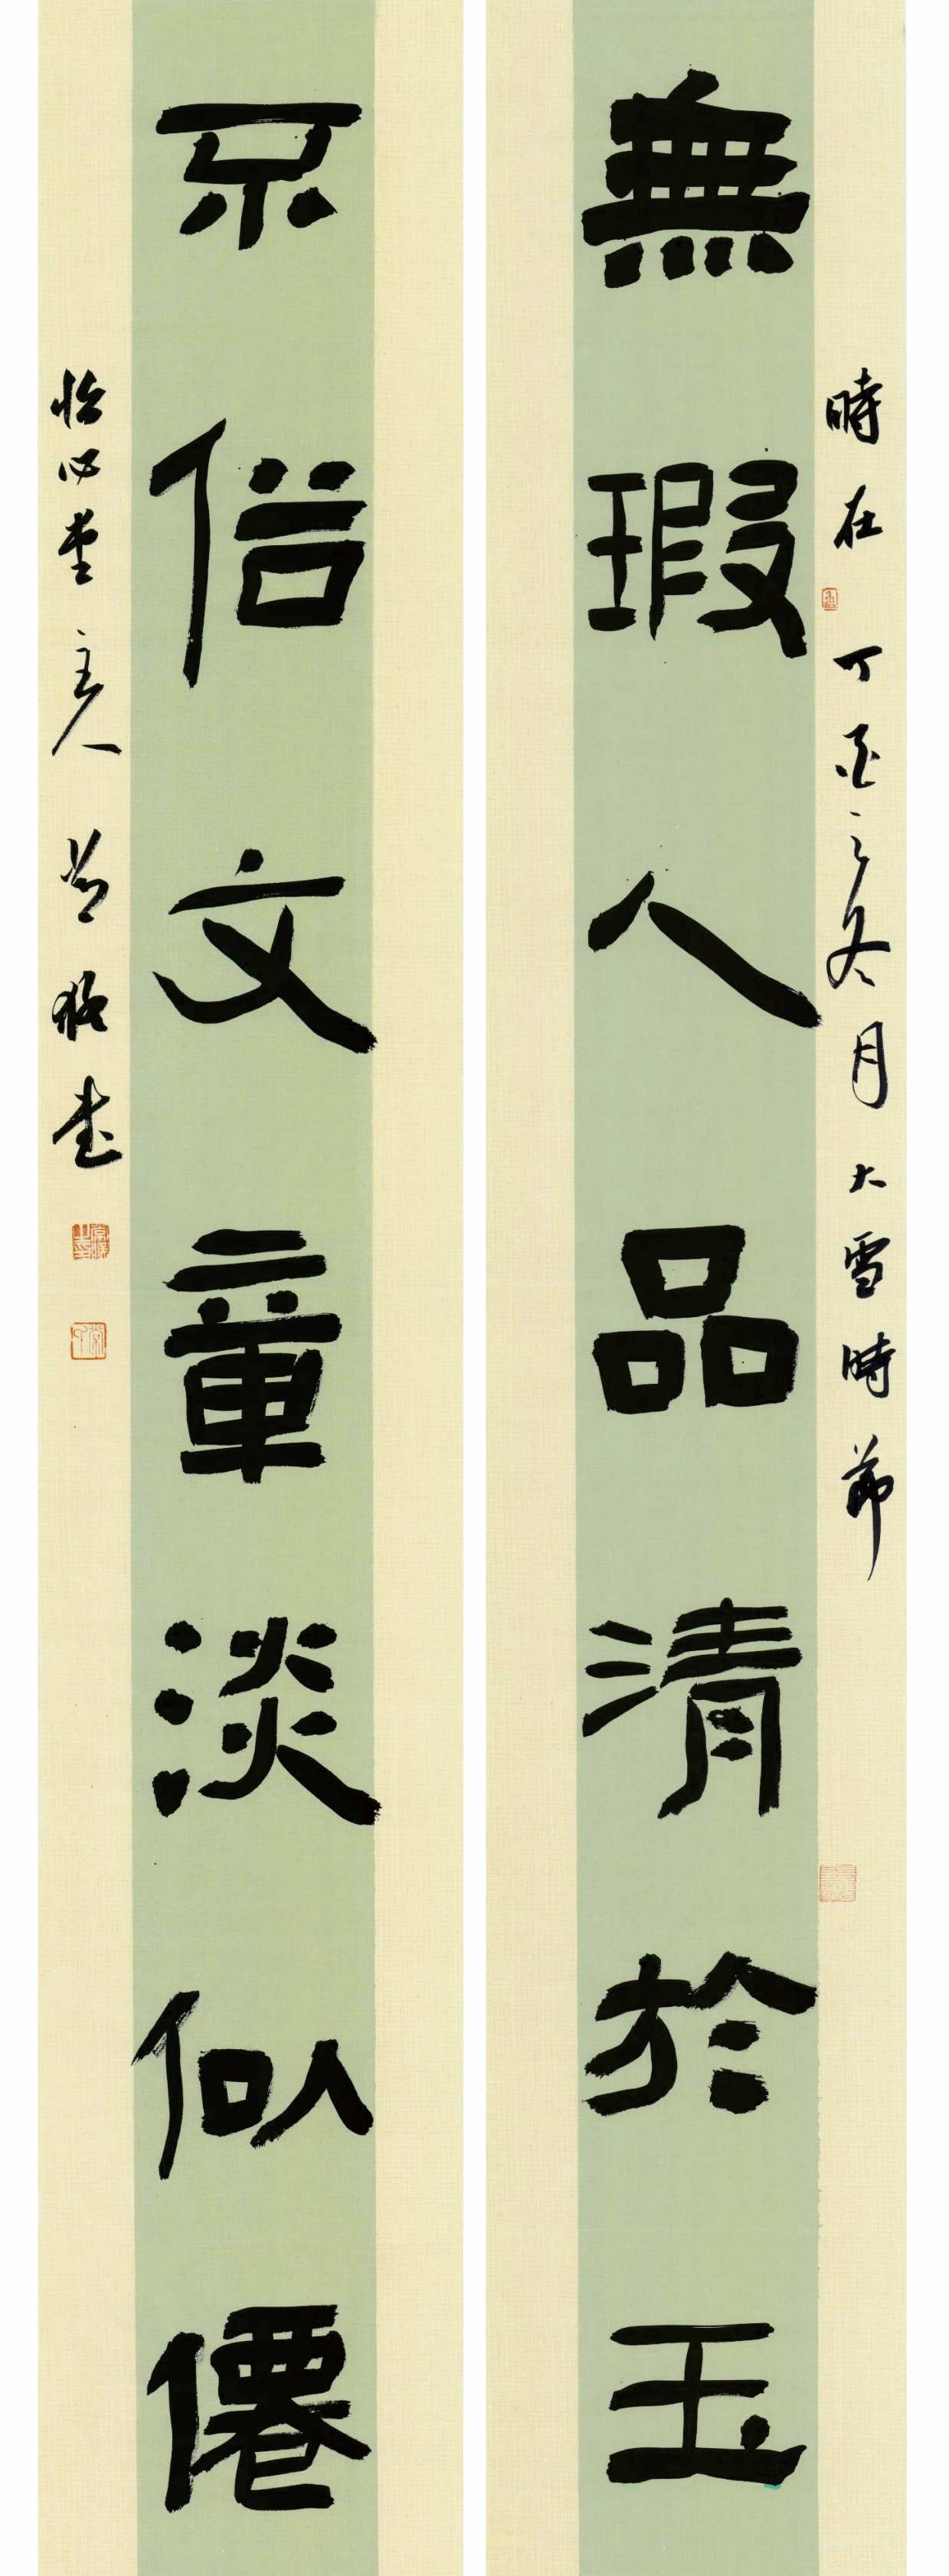 時在丁酉之冬月大雪時節
無瑕人品清於玉
不俗文章淡似僊
怡心堂主人書